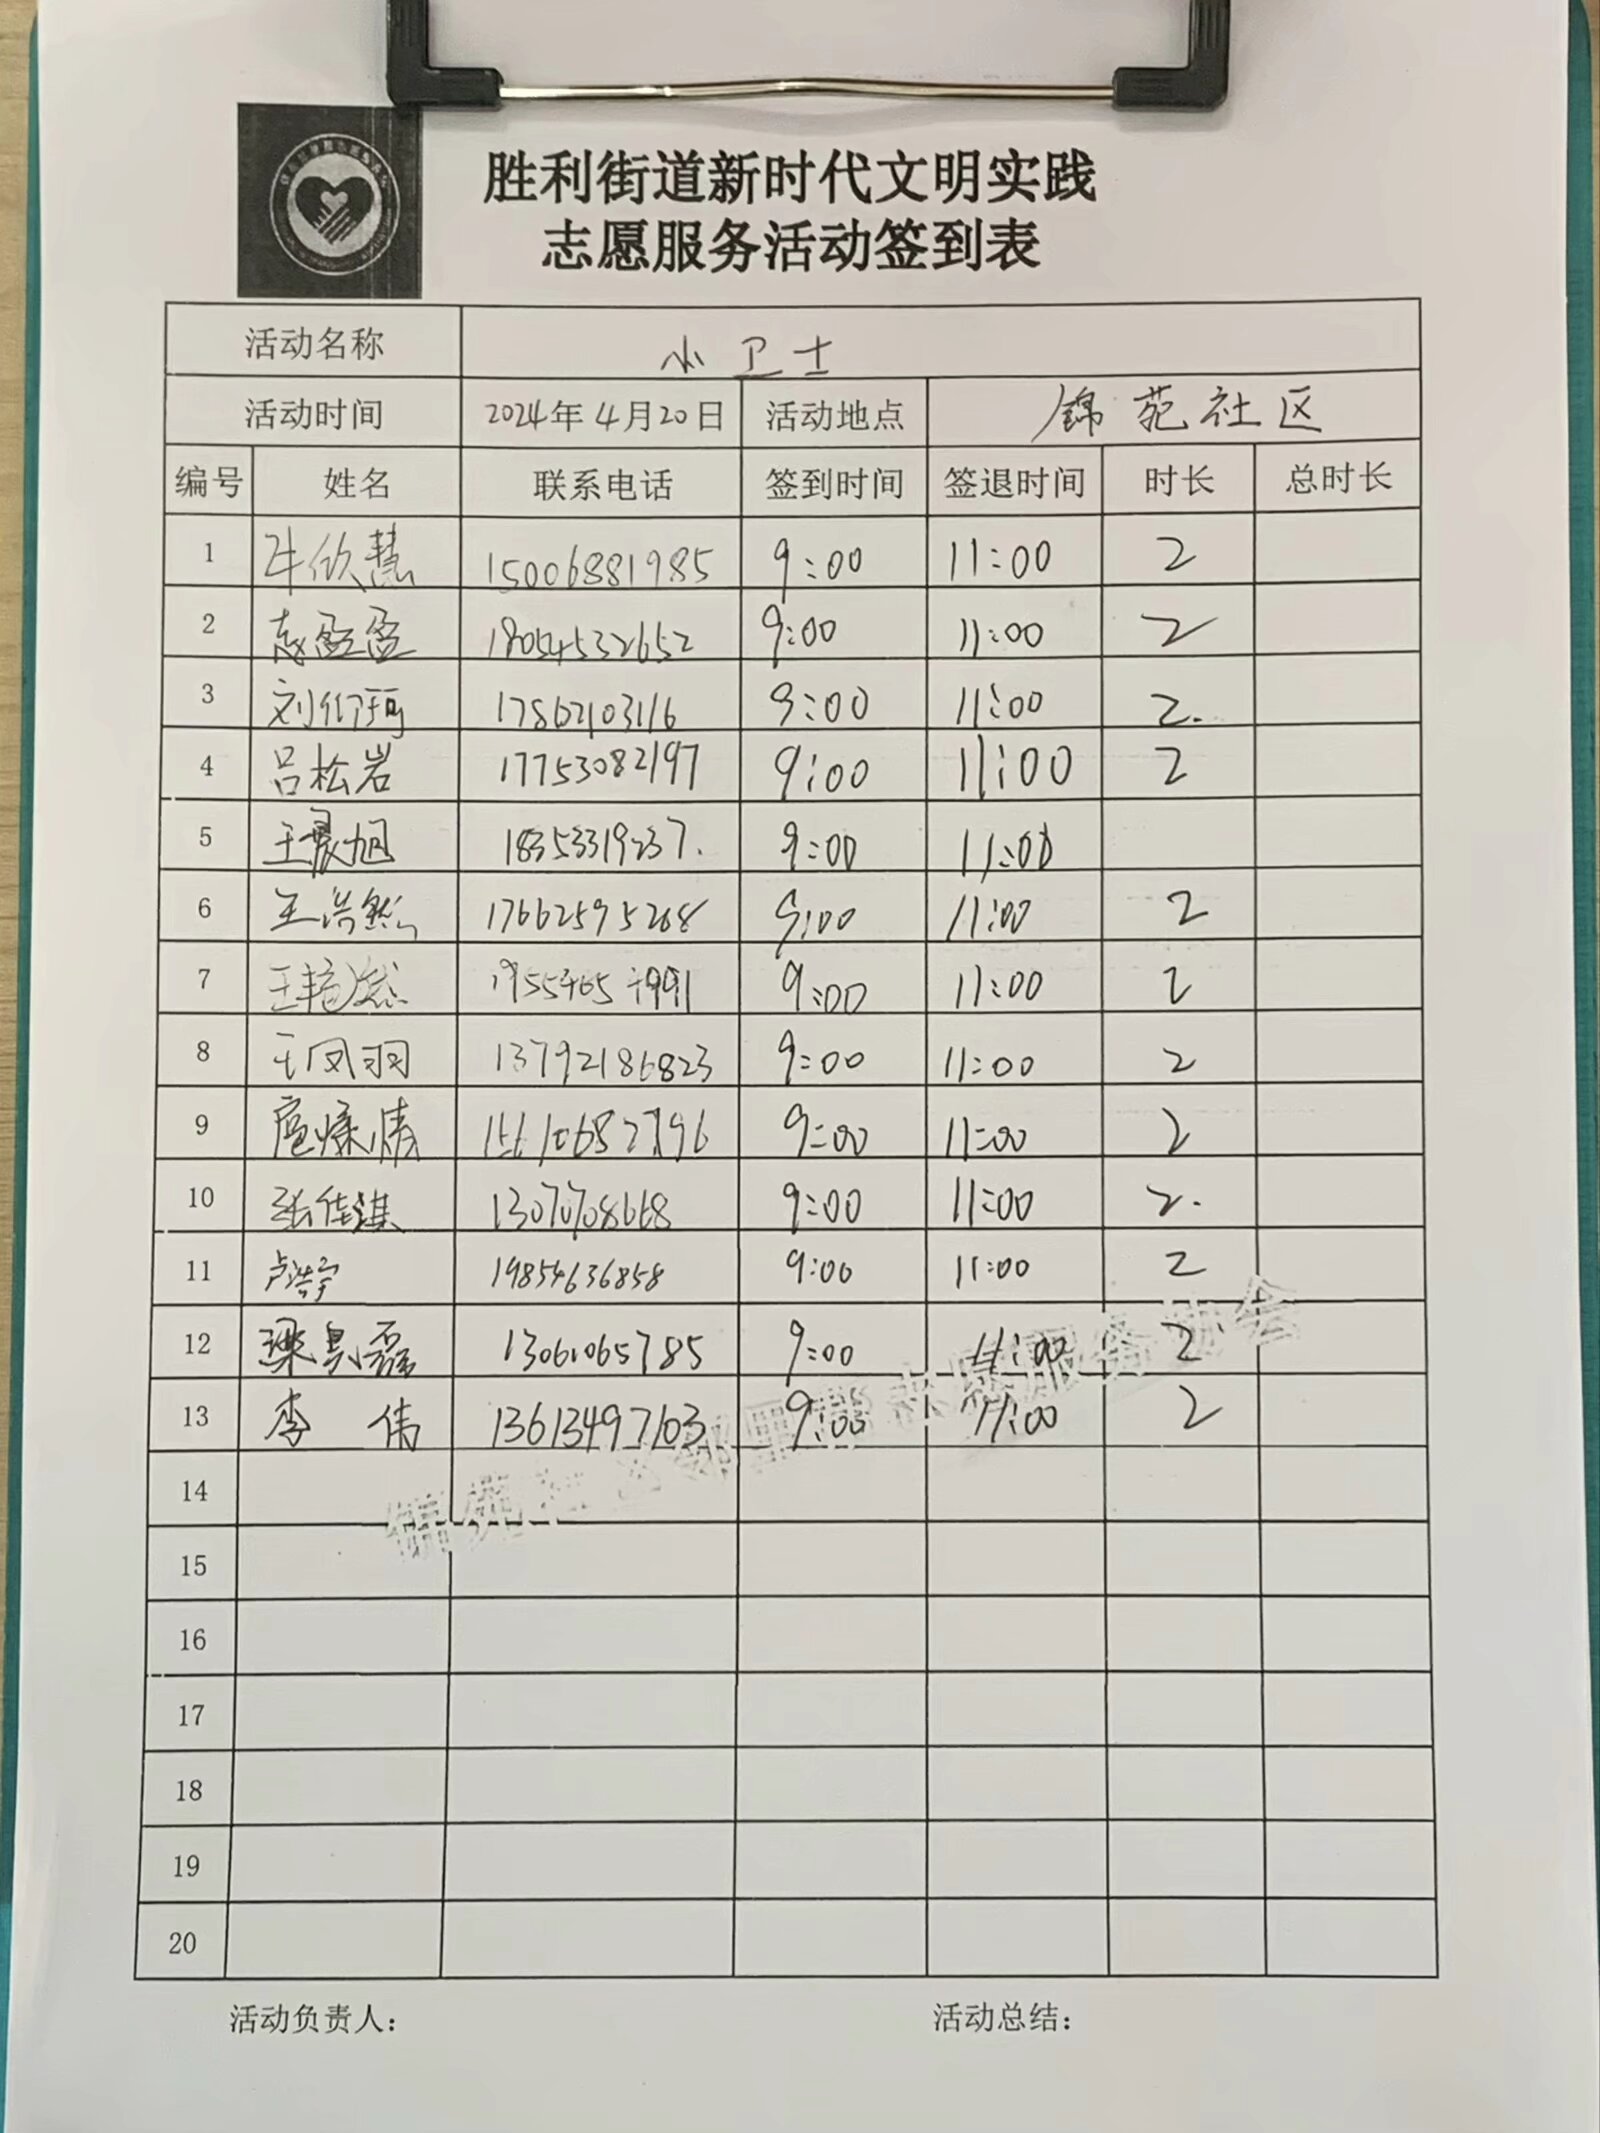 胜利街道新时代文明实践
志愿服务活动签到表
活动名称 小卫士
活动时间 2024年4月20日 活动地点 锦苑社区
编号 姓名 联系电话 签到时间 签退时间 时长 总时长
1 牛欣慧 15006881985 9:00 11:00 2
2 盈盈 18054532652 9:00 11:00 2
3 刘 17862103116 9:00 11:00 2.
4 吕松岩 17753082197 9:00 11:00 2
5 王晨旭 18353319237. 9:00 11:00
6 王浩然 17662595268 9:00 11:00 2
7 王艳然 9:00 11:00 2
8 王凤羽 13792186823 9:00 11:00 2
9 9:00 11:00 2
10 张佳淇 13070708668 9:00 11:00 2.
11 卢浩宇 19854636858 9:00 11:00 2
12 梁昊磊 13061065785 9:00 11:00 2
13 李伟 13613497103 9:00 11:00 2
14
15
16
17
18
19
20
锦苑社区邻里帮志愿服务协会
活动负责人: 活动总结: